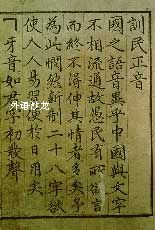 訓民正音
國之語音異乎中國與文字
不相流通故愚民有所欲言
而終不得伸其情者多矣予
為此憫然新制二十八字欲
使人人易習便於日用矣
ㄱ牙音如君字初發聲
外语沙龙